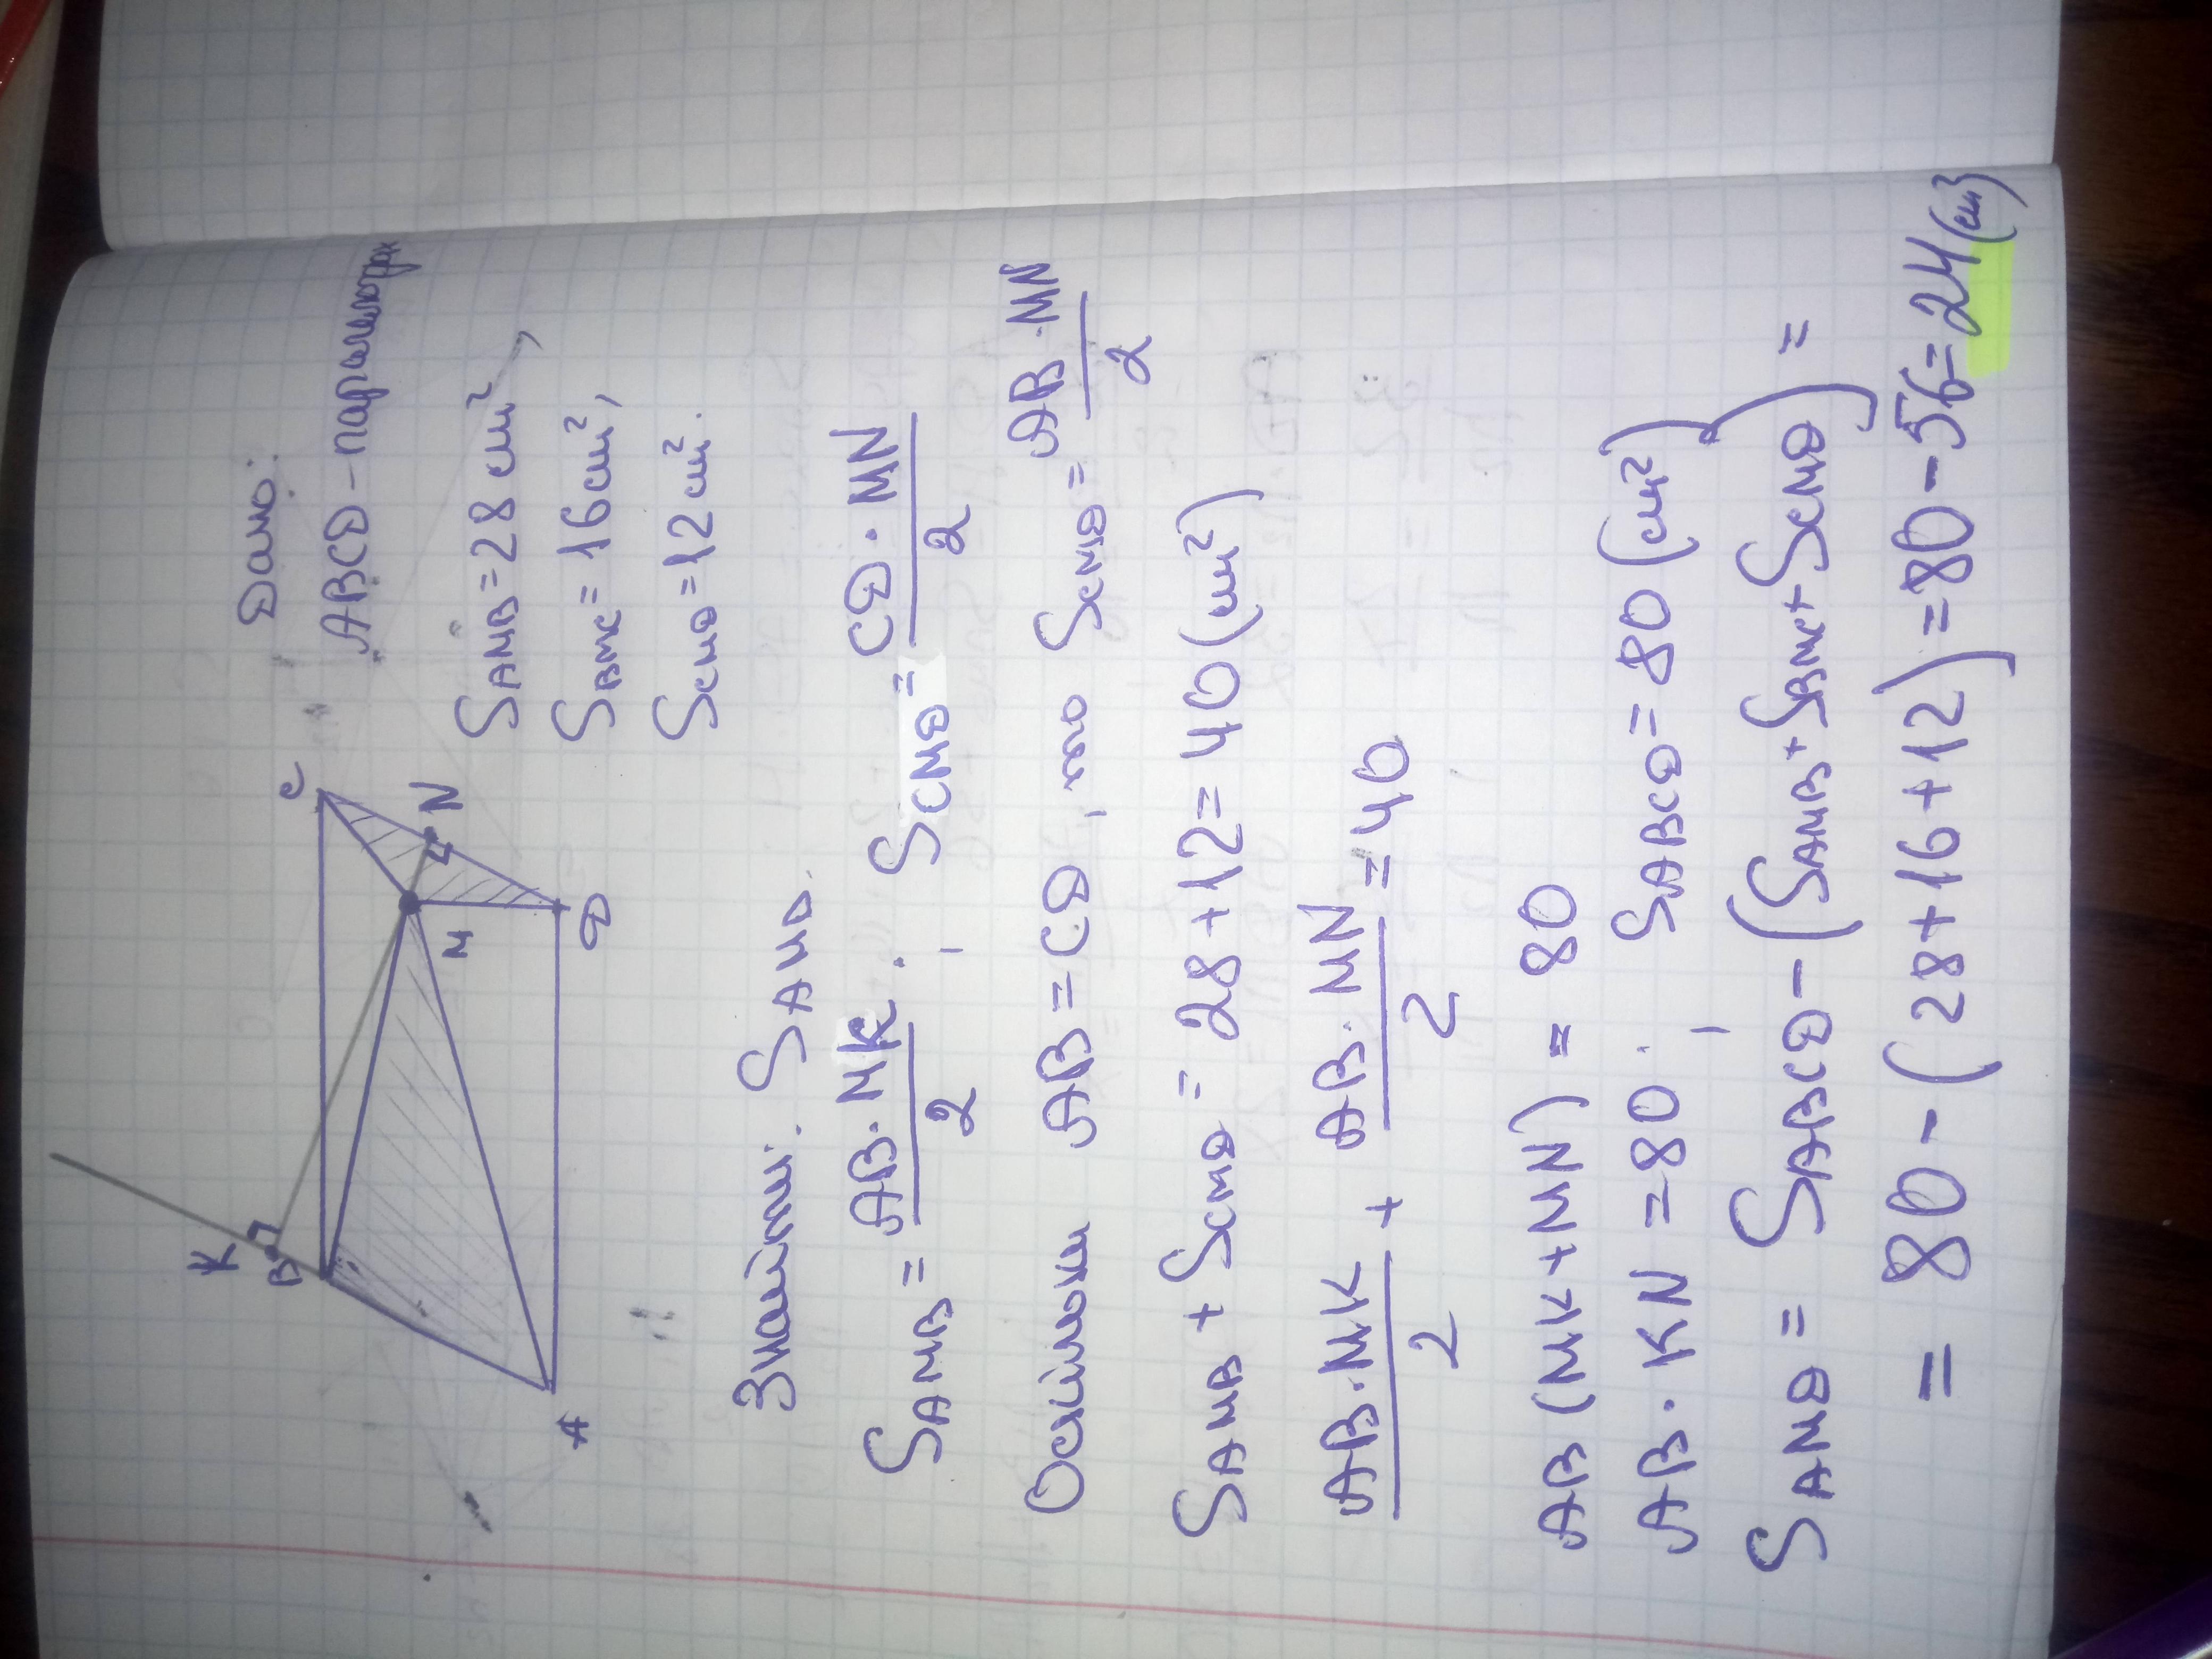 Дано:
ABCD - паралелогра
S AMB = 28 см²,
S BMC = 16 см²,
S CMD = 12 см².
K
B
C
M
N
A
D
Знайти: S AMD.
S AMB = AB·MK/2 ; S CMD = CD·MN/2
Оскільки AB = CD, то S CMD = AB·MN/2
S AMB + S CMD = 28 + 12 = 40 (см²)
AB·MK/2 + AB·MN/2 = 40
AB (MK + MN) = 80
AB · KN = 80 ; S ABCD = 80 (см²)
S AMD = S ABCD - (S AMB + S BMC + S CMD) =
= 80 - (28 + 16 + 12) = 80 - 56 = 24 (см²)